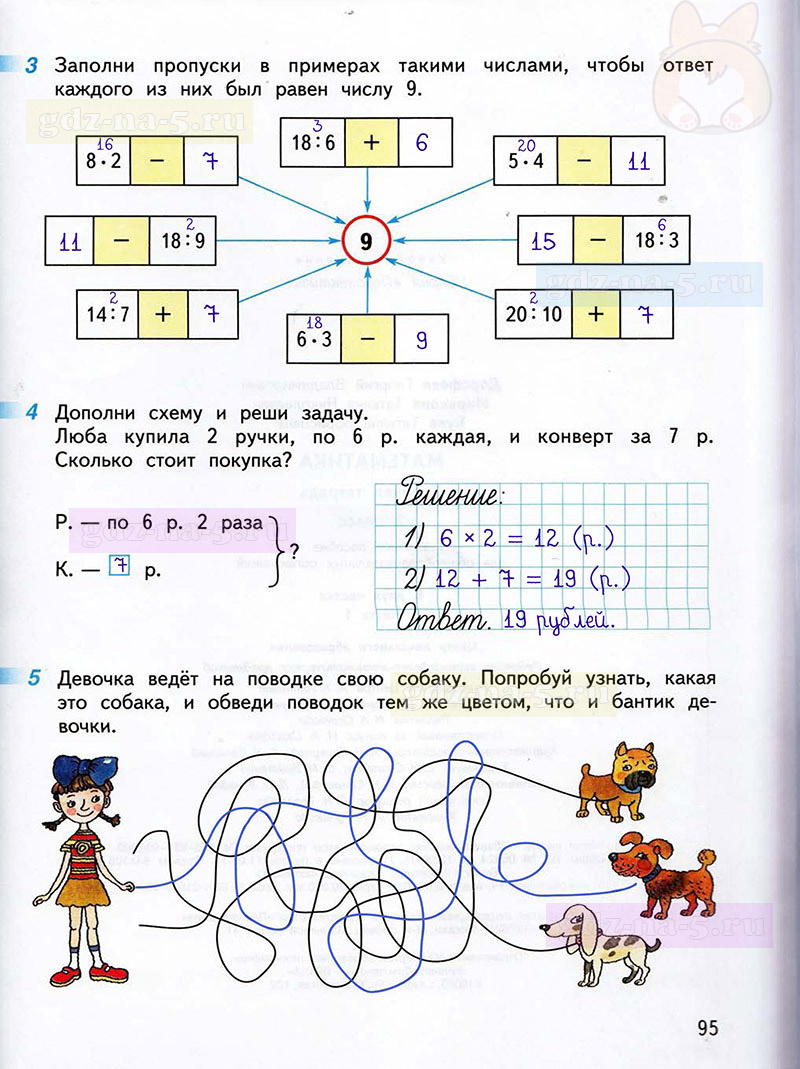 3 Заполни пропуски в примерах такими числами, чтобы ответ
каждого из них был равен числу 9.
gdz-na-5.ru
16
8·2 – 7
3
18:6 + 6
20
5·4 – 11
2
11 – 18:9
9
6
15 – 18:3
gdz-na-5.ru
2
14:7 + 7
18
6·3 – 9
2
20:10 + 7
4 Дополни схему и реши задачу.
Люба купила 2 ручки, по 6 р. каждая, и конверт за 7 р.
Сколько стоит покупка?
Решение:
Р. — по 6 р. 2 раза
К. — 7 р.
?
gdz-na-5.ru
1) 6 × 2 = 12 (р.)
2) 12 + 7 = 19 (р.)
Ответ. 19 рублей.
5 Девочка ведёт на поводке свою собаку. Попробуй узнать, какая
это собака, и обведи поводок тем же цветом, что и бантик де-
вочки.
gdz-na-5.ru
gdz-na-5.ru
95